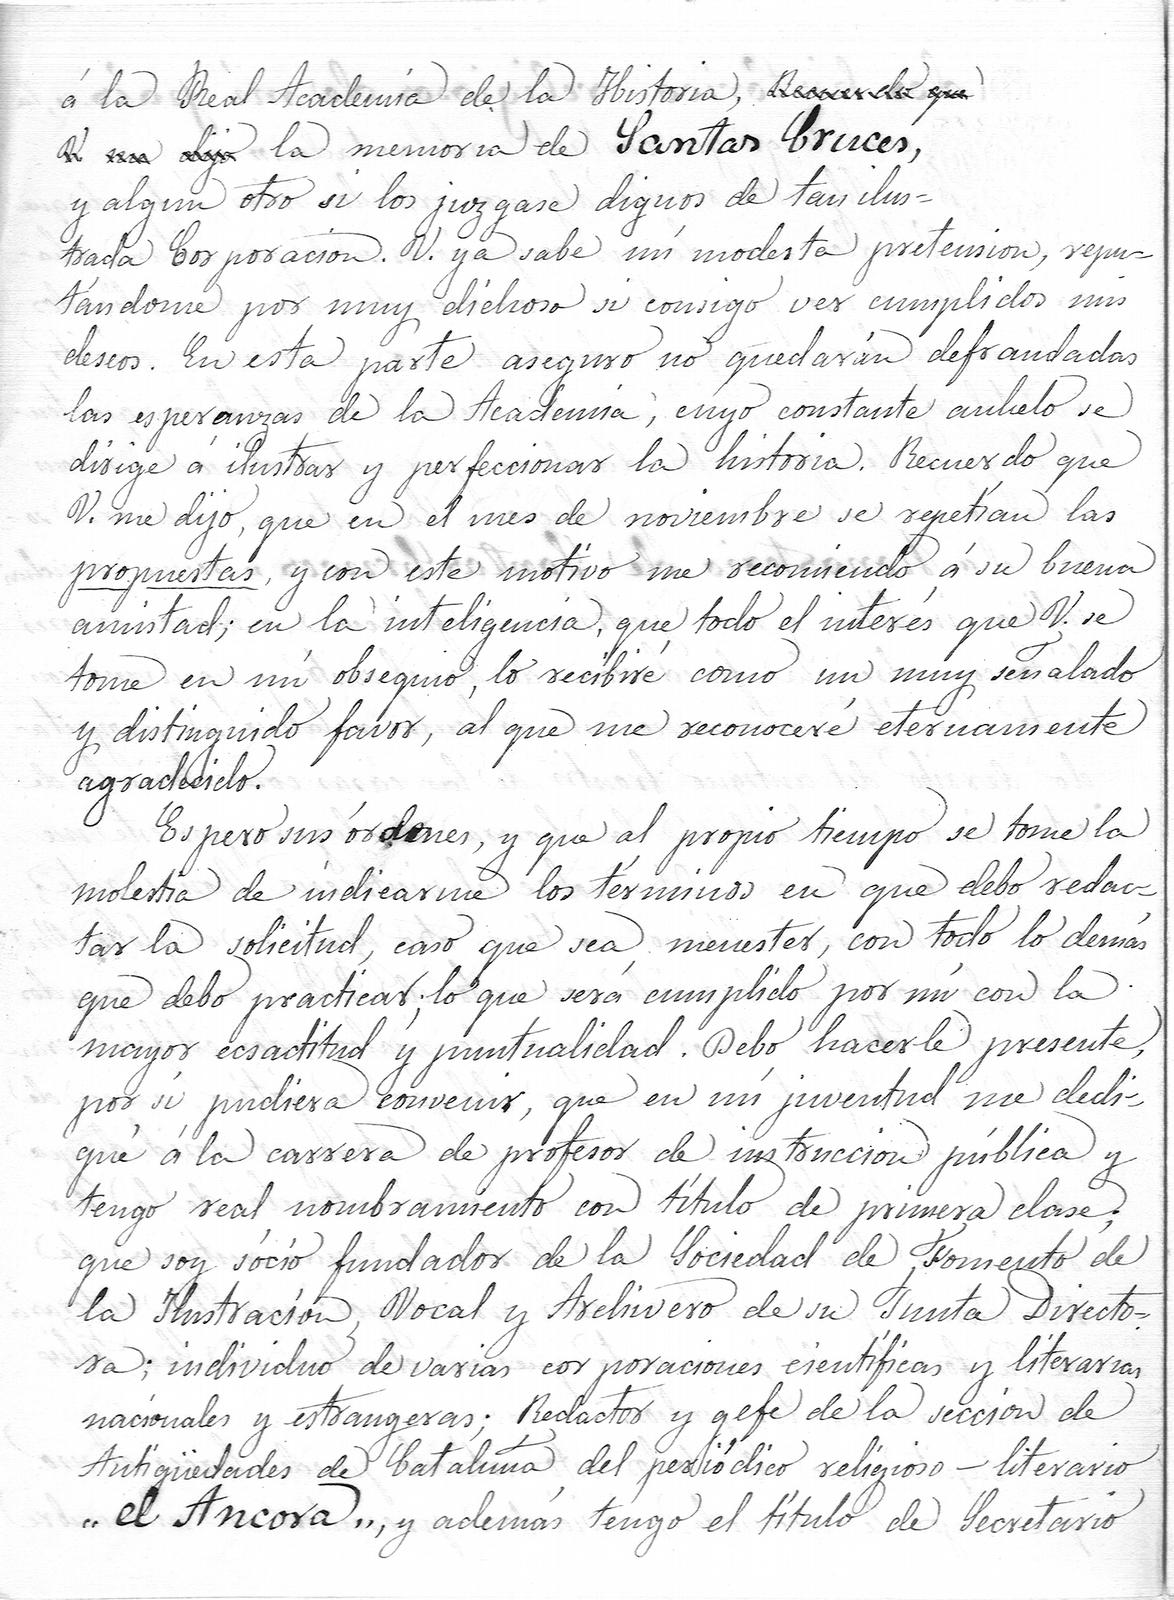 á la Real Academia de la Historia, Recuerdo que
V. me dijo la memoria de Santas Cruces,
y algun otro si los juzgase dignos de tan ilus-
trada Corporacion. V. ya sabe mi modesta pretension, repu-
tándome por muy dichoso si consigo ver cumplidos mis
deseos. En esta parte aseguro no quedarán defraudadas
las esperanzas de la Academia, cuyo constante anhelo se
dirige á ilustrar y perfeccionar la historia. Recuerdo que
V. me dijo, que en el mes de noviembre se repetian las
propuestas, y con este motivo me recomiendo á su buena
amistad; en la inteligencia, que todo el interés que V. se
tome en mi obsequio, lo recibiré como un muy señalado
y distinguido favor, al que me reconoceré eternamente
agradecido.
Espero sus órdenes, y que al propio tiempo se tome la
molestia de indicarme los términos en que debo redac-
tar la solicitud, caso que sea menester, con todo lo demás
que debo practicar; lo que será cumplido por mi con la
mayor ecsactitud y puntualidad. Debo hacerle presente,
por si pudiera convenir, que en mi juventud me dedi-
qué á la carrera de profesor de instruccion pública y
tengo real nombramiento con título de primera clase;
que soy sócio fundador de la Sociedad de Fomento de
la Ilustracion, Vocal y Archivero de su Junta Directo-
ra; individuo de varias corporaciones científicas y literarias
nacionales y estrangeras; Redactor y gefe de la seccion de
Antigüedades de Cataluña del periódico religioso - literario
„el Ancora„, y además tengo el título de Secretario